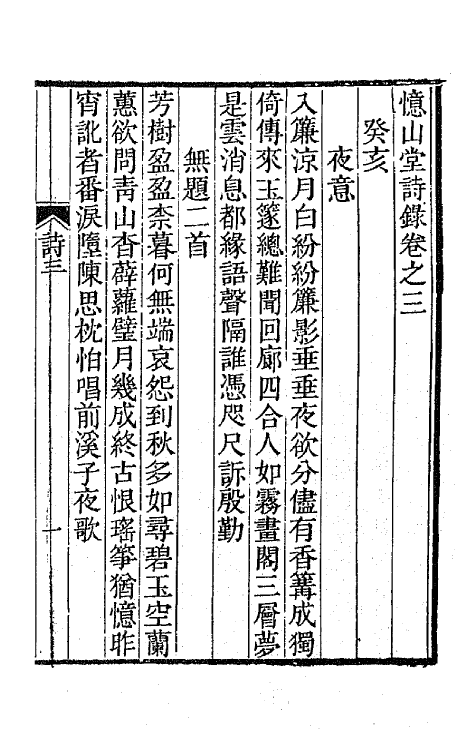 憶山堂詩錄卷之三
癸亥
夜意
入簾涼月白紛紛簾影垂垂夜欲分儘有香篝成獨
倚傳來玉篴總難聞回廊四合人如霧畫閣三層夢
是雲消息都緣語聲隔誰憑咫尺訴殷勤
無題二首
芳樹盈盈柰暮何無端哀怨到秋多如尋碧玉空蘭
蕙欲問青山杳薜蘿璧月幾成終古恨瑤箏猶憶昨
宵訛者番淚墮陳思枕怕唱前溪子夜歌
詩三
一